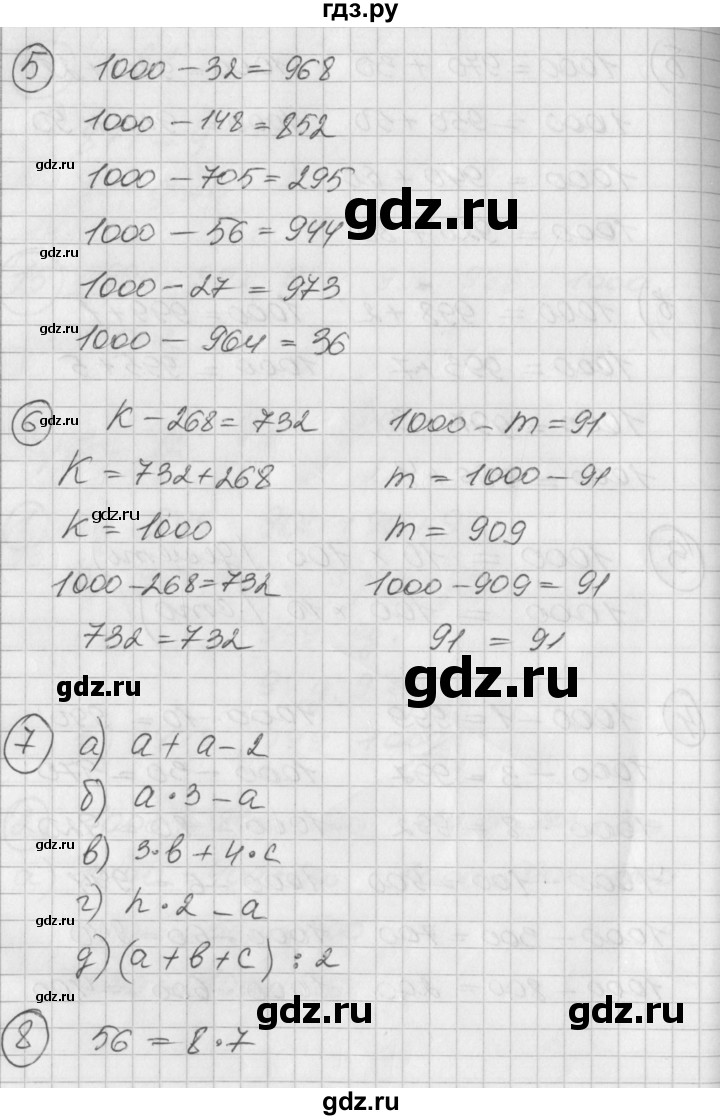 гдз.ру
5 1000 - 32 = 968
1000 - 148 = 852
gdz.ru
1000 - 705 = 295
gdz.ru
1000 - 56 = 944
gdz.ru
1000 - 27 = 973
gdz.ru
1000 - 964 = 36
6 gdz.ru K - 268 = 732 1000 - m = 91
K = 732 + 268 m = 1000 - 91
gdz.ru
K = 1000 m = 909
1000 - 268 = 732 1000 - 909 = 91
732 = 732 91 = 91
gdz.ru gdz.ru
7 а) a + a - 2
б) a · 3 - a
gdz.ru в) 3 · b + 4 · c
г) h · 2 - a
gdz.ru
д) (a + b + c) : 2
gdz.ru gdz.ru
8 56 = 8 · 7
gdz.ru